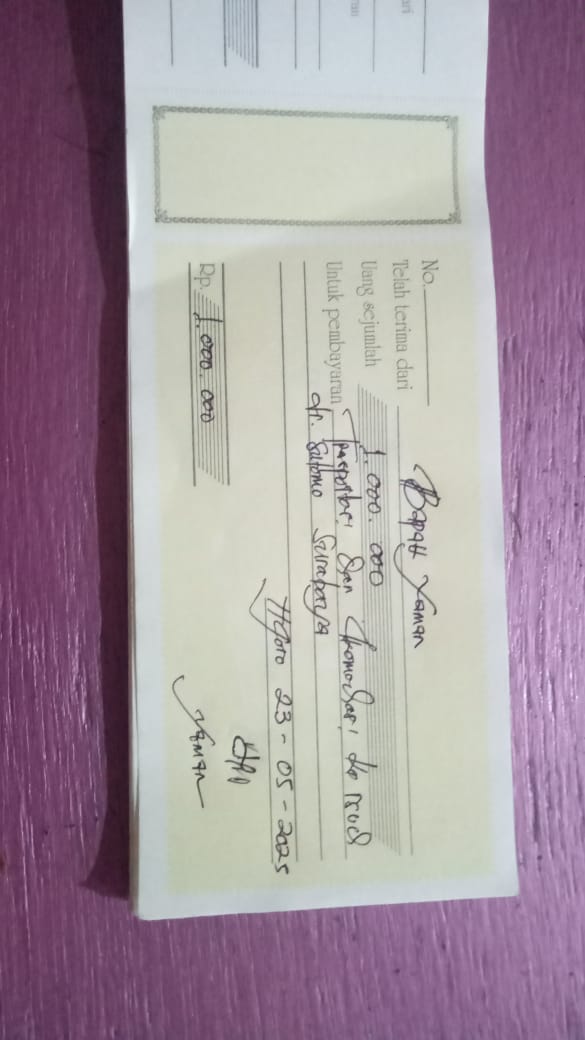 No.
Telah terima dari Bapak Yaman
Uang sejumlah 1.000.000
Untuk pembayaran Trasportasi dan Akomodasi ke rsud
dr. Sutomo Surabaya
23-05-2025
Rp. 1.000.000
Yaman